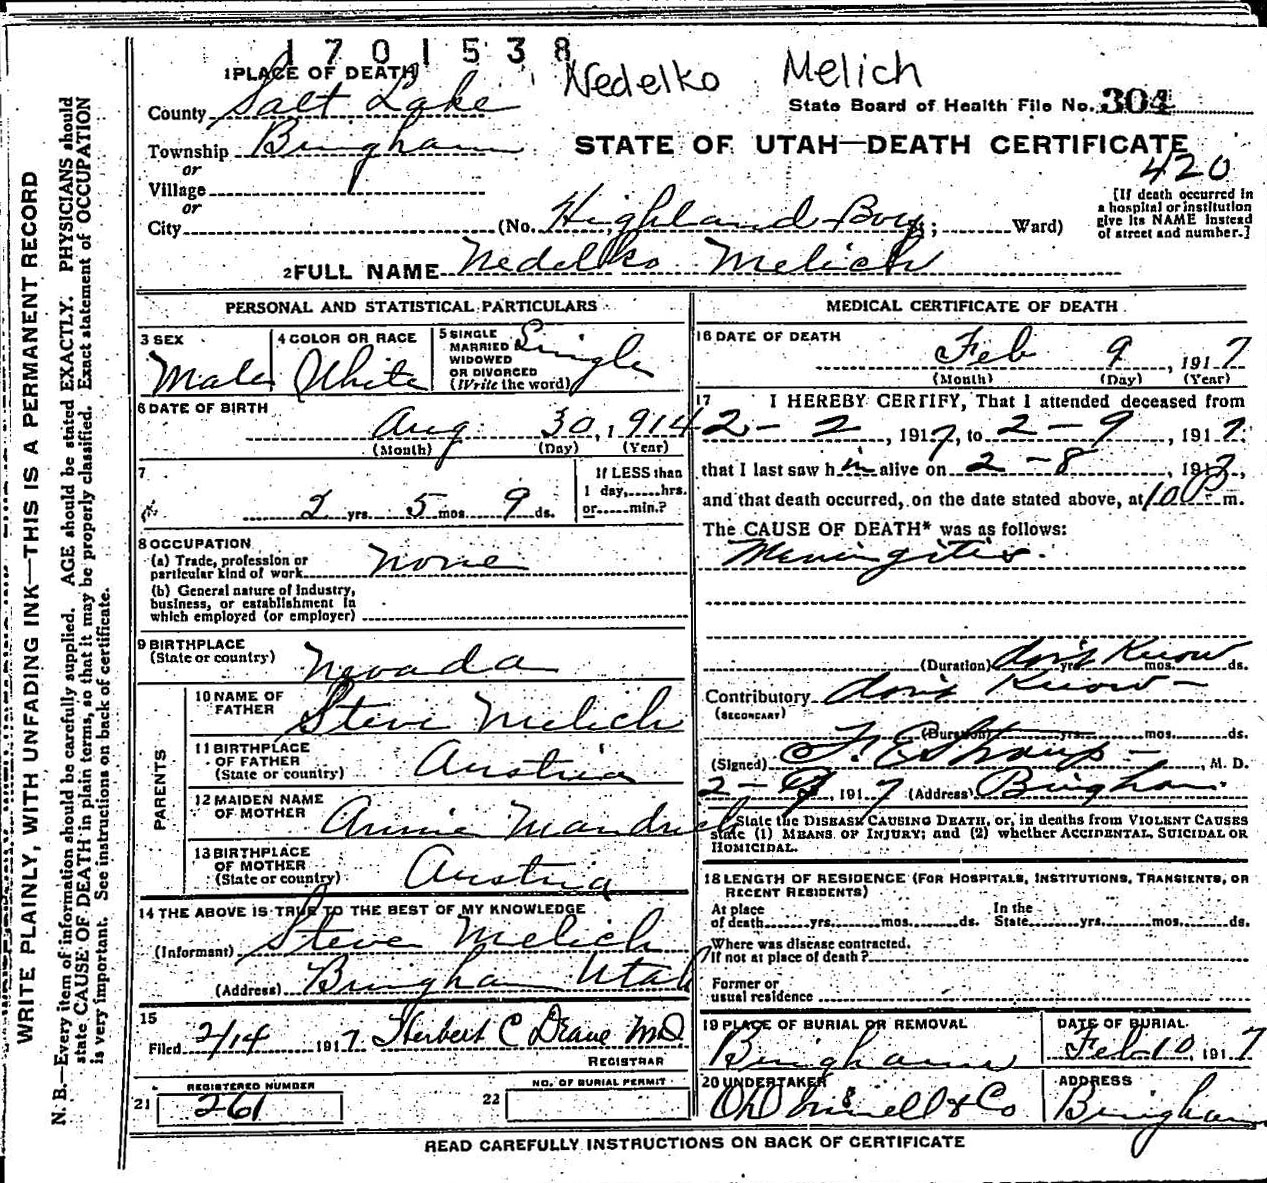 1701538
Nedelko Melich
1 PLACE OF DEATH
County Salt Lake
State Board of Health File No. 304
Township Bingham
STATE OF UTAH—DEATH CERTIFICATE
or
420
Village
or
[If death occurred in
a hospital or institution
give its NAME instead
of street and number.]
City (No. Highland Boy; Ward)
2 FULL NAME Nedelko Melich
PERSONAL AND STATISTICAL PARTICULARS
3 SEX
Male
4 COLOR OR RACE
White
5 SINGLE
MARRIED
WIDOWED
OR DIVORCED
(Write the word)
Single
6 DATE OF BIRTH
Aug 30, 1914
(Month) (Day) (Year)
7
2 yrs. 5 mos. 9 ds.
If LESS than
1 day, hrs.
or min.?
8 OCCUPATION
(a) Trade, profession or
particular kind of work none
(b) General nature of Industry,
business, or establishment in
which employed (or employer)
9 BIRTHPLACE
(State or country) Nevada
PARENTS
10 NAME OF
FATHER Steve Melich
11 BIRTHPLACE
OF FATHER
(State or country) Austria
12 MAIDEN NAME
OF MOTHER Annie Mandich
13 BIRTHPLACE
OF MOTHER
(State or country) Austria
14 THE ABOVE IS TRUE TO THE BEST OF MY KNOWLEDGE
(Informant) Steve Melich
(Address) Bingham Utah
15
Filed 2/14 1917 Herbert C MD
REGISTRAR
REGISTERED NUMBER
21 261
NO. OF BURIAL PERMIT
22
MEDICAL CERTIFICATE OF DEATH
16 DATE OF DEATH
Feb 9, 1917
(Month) (Day) (Year)
17 I HEREBY CERTIFY, That I attended deceased from
2-2, 1917, to 2-9, 1917
that I last saw him alive on 2-8, 1917,
and that death occurred, on the date stated above, at 10 P. m.
The CAUSE OF DEATH* was as follows:
Meningitis.
(Duration) don't know yrs. mos. ds.
Contributory don't know -
(SECONDARY)
(Duration) yrs. mos. ds.
(Signed) , M. D.
2-9, 1917 (Address) Bingham.
State the DISEASE CAUSING DEATH, or, in deaths from VIOLENT CAUSES
state (1) MEANS OF INJURY; and (2) whether ACCIDENTAL, SUICIDAL OR
HOMICIDAL.
18 LENGTH OF RESIDENCE (FOR HOSPITALS, INSTITUTIONS, TRANSIENTS, OR
RECENT RESIDENTS)
At place
of death yrs. mos. ds.
In the
State yrs. mos. ds.
Where was disease contracted.
If not at place of death?
Former or
usual residence
19 PLACE OF BURIAL OR REMOVAL
Bingham
DATE OF BURIAL
Feb-10 1917
20 UNDERTAKER
& Co
ADDRESS
Bingham
READ CAREFULLY INSTRUCTIONS ON BACK OF CERTIFICATE
WRITE PLAINLY, WITH UNFADING INK—THIS IS A PERMANENT RECORD
N. B.—Every item of information should be carefully supplied. AGE should be stated EXACTLY. PHYSICIANS should
state CAUSE OF DEATH in plain terms, so that it may be properly classified. Exact statement of OCCUPATION
is very important. See instructions on back of certificate.